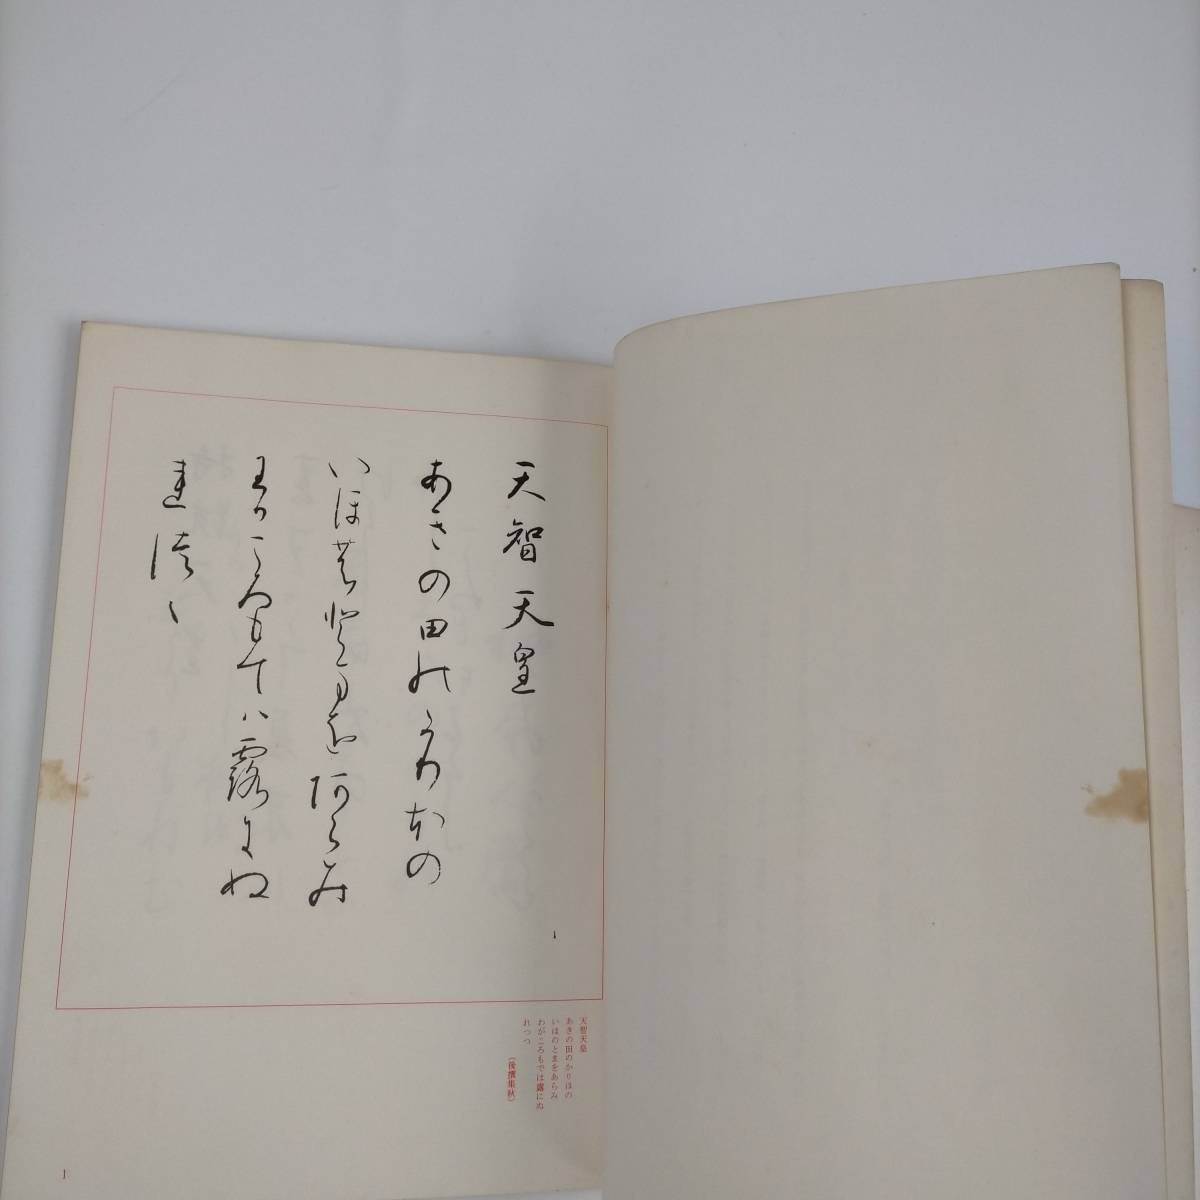 天智天皇
あきの田のかりほの
いほのとまをあらみ
わかころもては露にぬ
れつゝ
1
天智天皇
あきの田のかりほの
いほのとまをあらみ
わがころもでは露にぬ
れつつ
(後撰集秋)
1